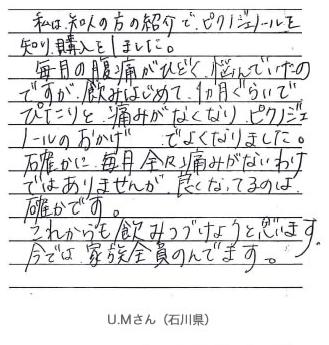 私は、知人の方の紹介で、ピクノジェノールを
知り、購入としました。
毎月の腹痛がひどく、悩んでいたの
ですが、飲みはじめて、1か月ぐらいで
ぴたりと、痛みがなくなり、ピクノジェ
ノールのおかげ でよくなりました。
確かに、毎月全々痛みがないわけ
ではありませんが、良くなってるのは、
確かです。
これからも飲みつづけようと思います。
今では、家族全員のんでます。
U.Mさん（石川県）